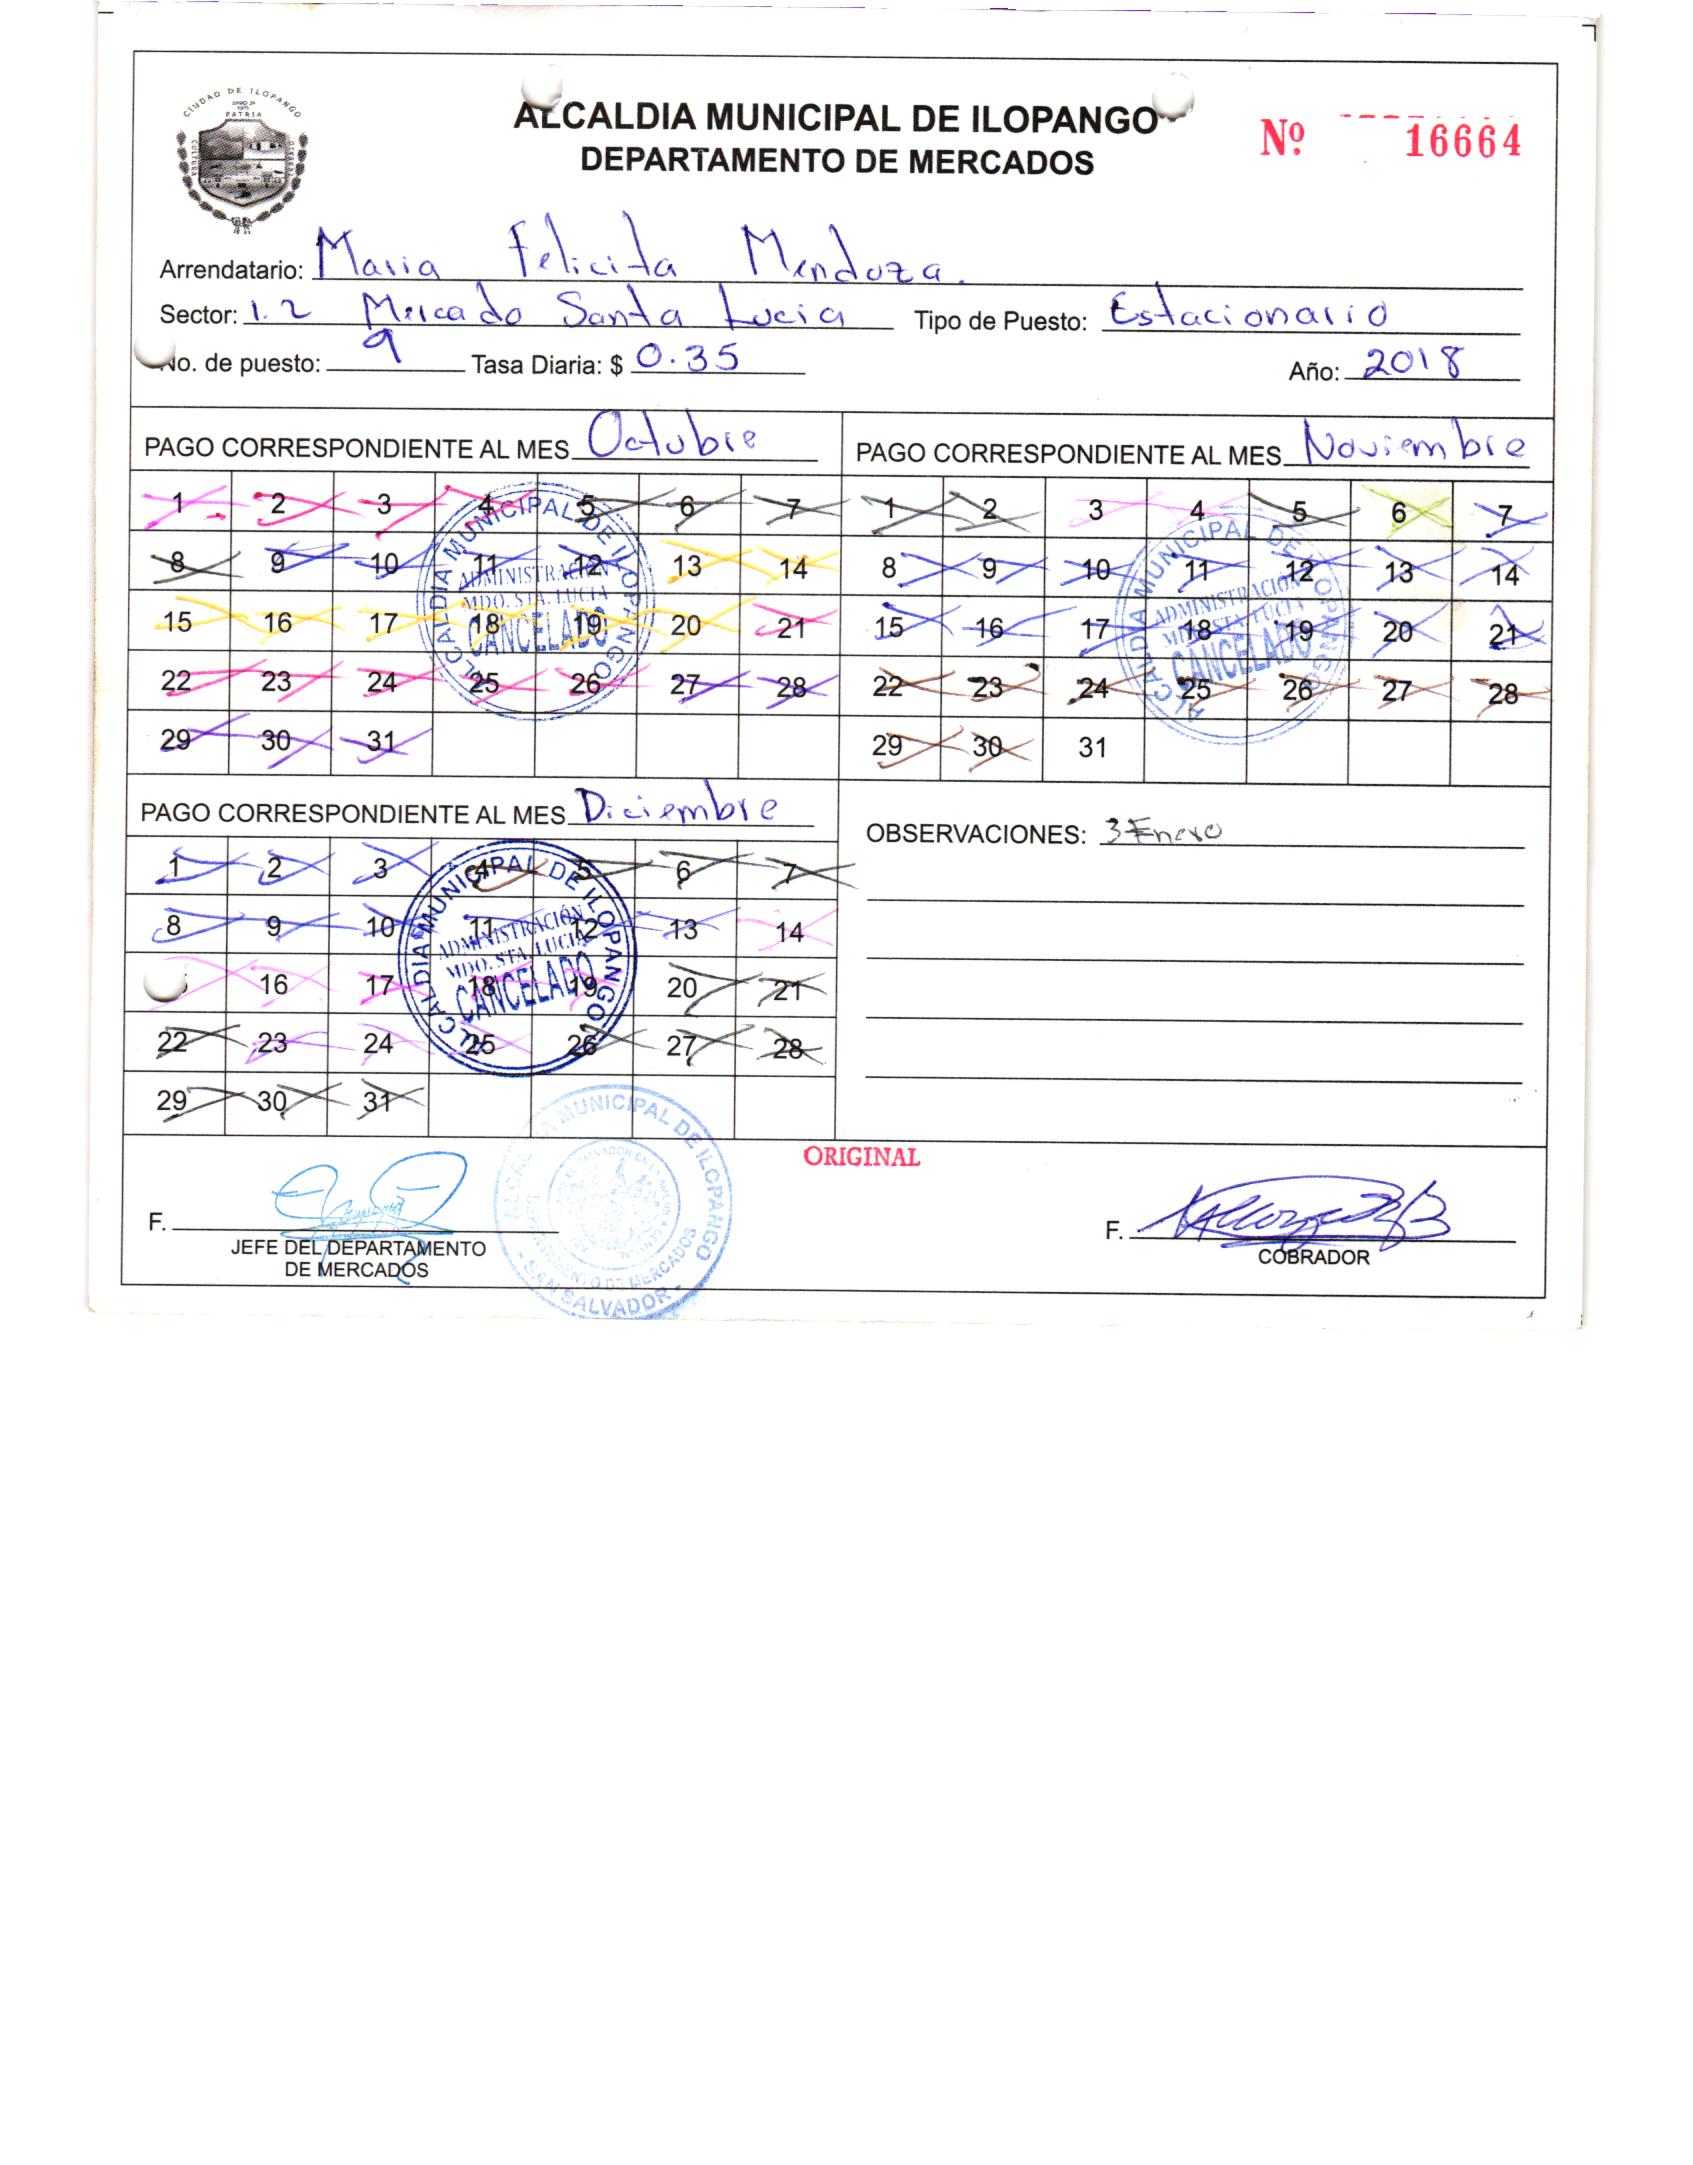 CIUDAD DE ILOPANGO
PATRIA
CULTURA
ALCALDIA MUNICIPAL DE ILOPANGO
DEPARTAMENTO DE MERCADOS
Nº 16664
Arrendatario: Maria Felicita Mendoza.
Sector: 1.2 Mercado Santa Lucia Tipo de Puesto: Estacionario
No. de puesto: 9 Tasa Diaria: $ 0.35 Año: 2018
PAGO CORRESPONDIENTE AL MES Octubre
1 2 3 4 5 6 7
8 9 10 11 12 13 14
15 16 17 18 19 20 21
22 23 24 25 26 27 28
29 30 31
ALCALDIA MUNICIPAL DE ILOPANGO
ADMINISTRACIÓN
MDO. STA. LUCIA
CANCELADO
PAGO CORRESPONDIENTE AL MES Noviembre
1 2 3 4 5 6 7
8 9 10 11 12 13 14
15 16 17 18 19 20 21
22 23 24 25 26 27 28
29 30 31
ALCALDIA MUNICIPAL DE ILOPANGO
ADMINISTRACIÓN
MDO. STA. LUCIA
CANCELADO
PAGO CORRESPONDIENTE AL MES Diciembre
1 2 3 4 5 6 7
8 9 10 11 12 13 14
16 17 18 19 20 21
22 23 24 25 26 27 28
29 30 31
ALCALDIA MUNICIPAL DE ILOPANGO
ADMINISTRACIÓN
MDO. STA. LUCIA
CANCELADO
OBSERVACIONES: 3 Enero
ORIGINAL
ALCALDIA MUNICIPAL DE ILOPANGO
DEPARTAMENTO DE MERCADOS
- SAN SALVADOR -
F.
JEFE DEL DEPARTAMENTO
DE MERCADOS
F.
COBRADOR